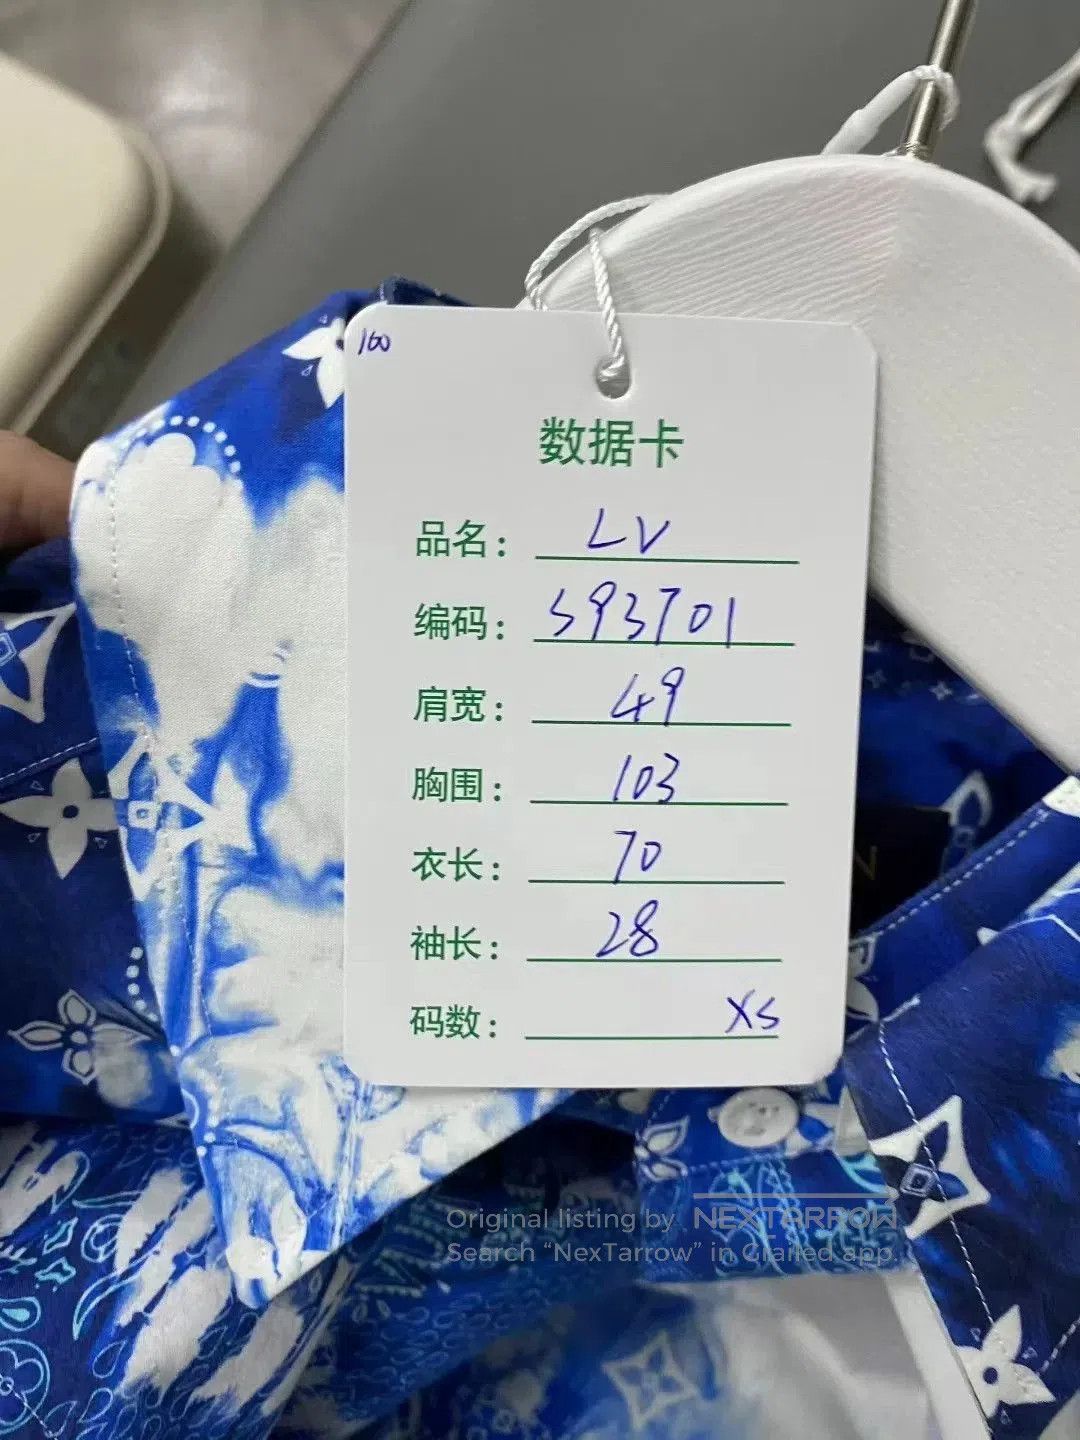 160
数据卡
品名: LV
编码: S93701
肩宽: 49
胸围: 103
衣长: 70
袖长: 28
码数: XS
Original listing by NEXTARROW
Search “NexTarrow” in Grailed app